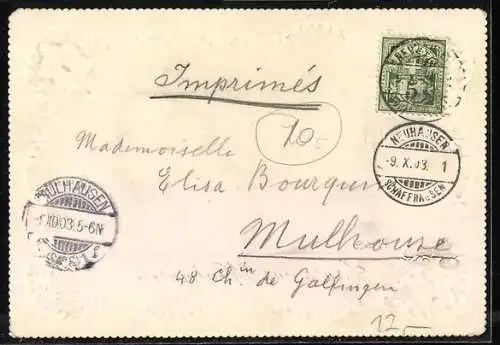 Imprimés
5
NEUHAUSEN
-9.X.03. 1
SCHAFFHAUSEN
10
Mademoiselle
Elisa Bourquin
MÜLHAUSEN
03.5-6N
Mulhouse
48 Ch.in de Galfingen
12.-